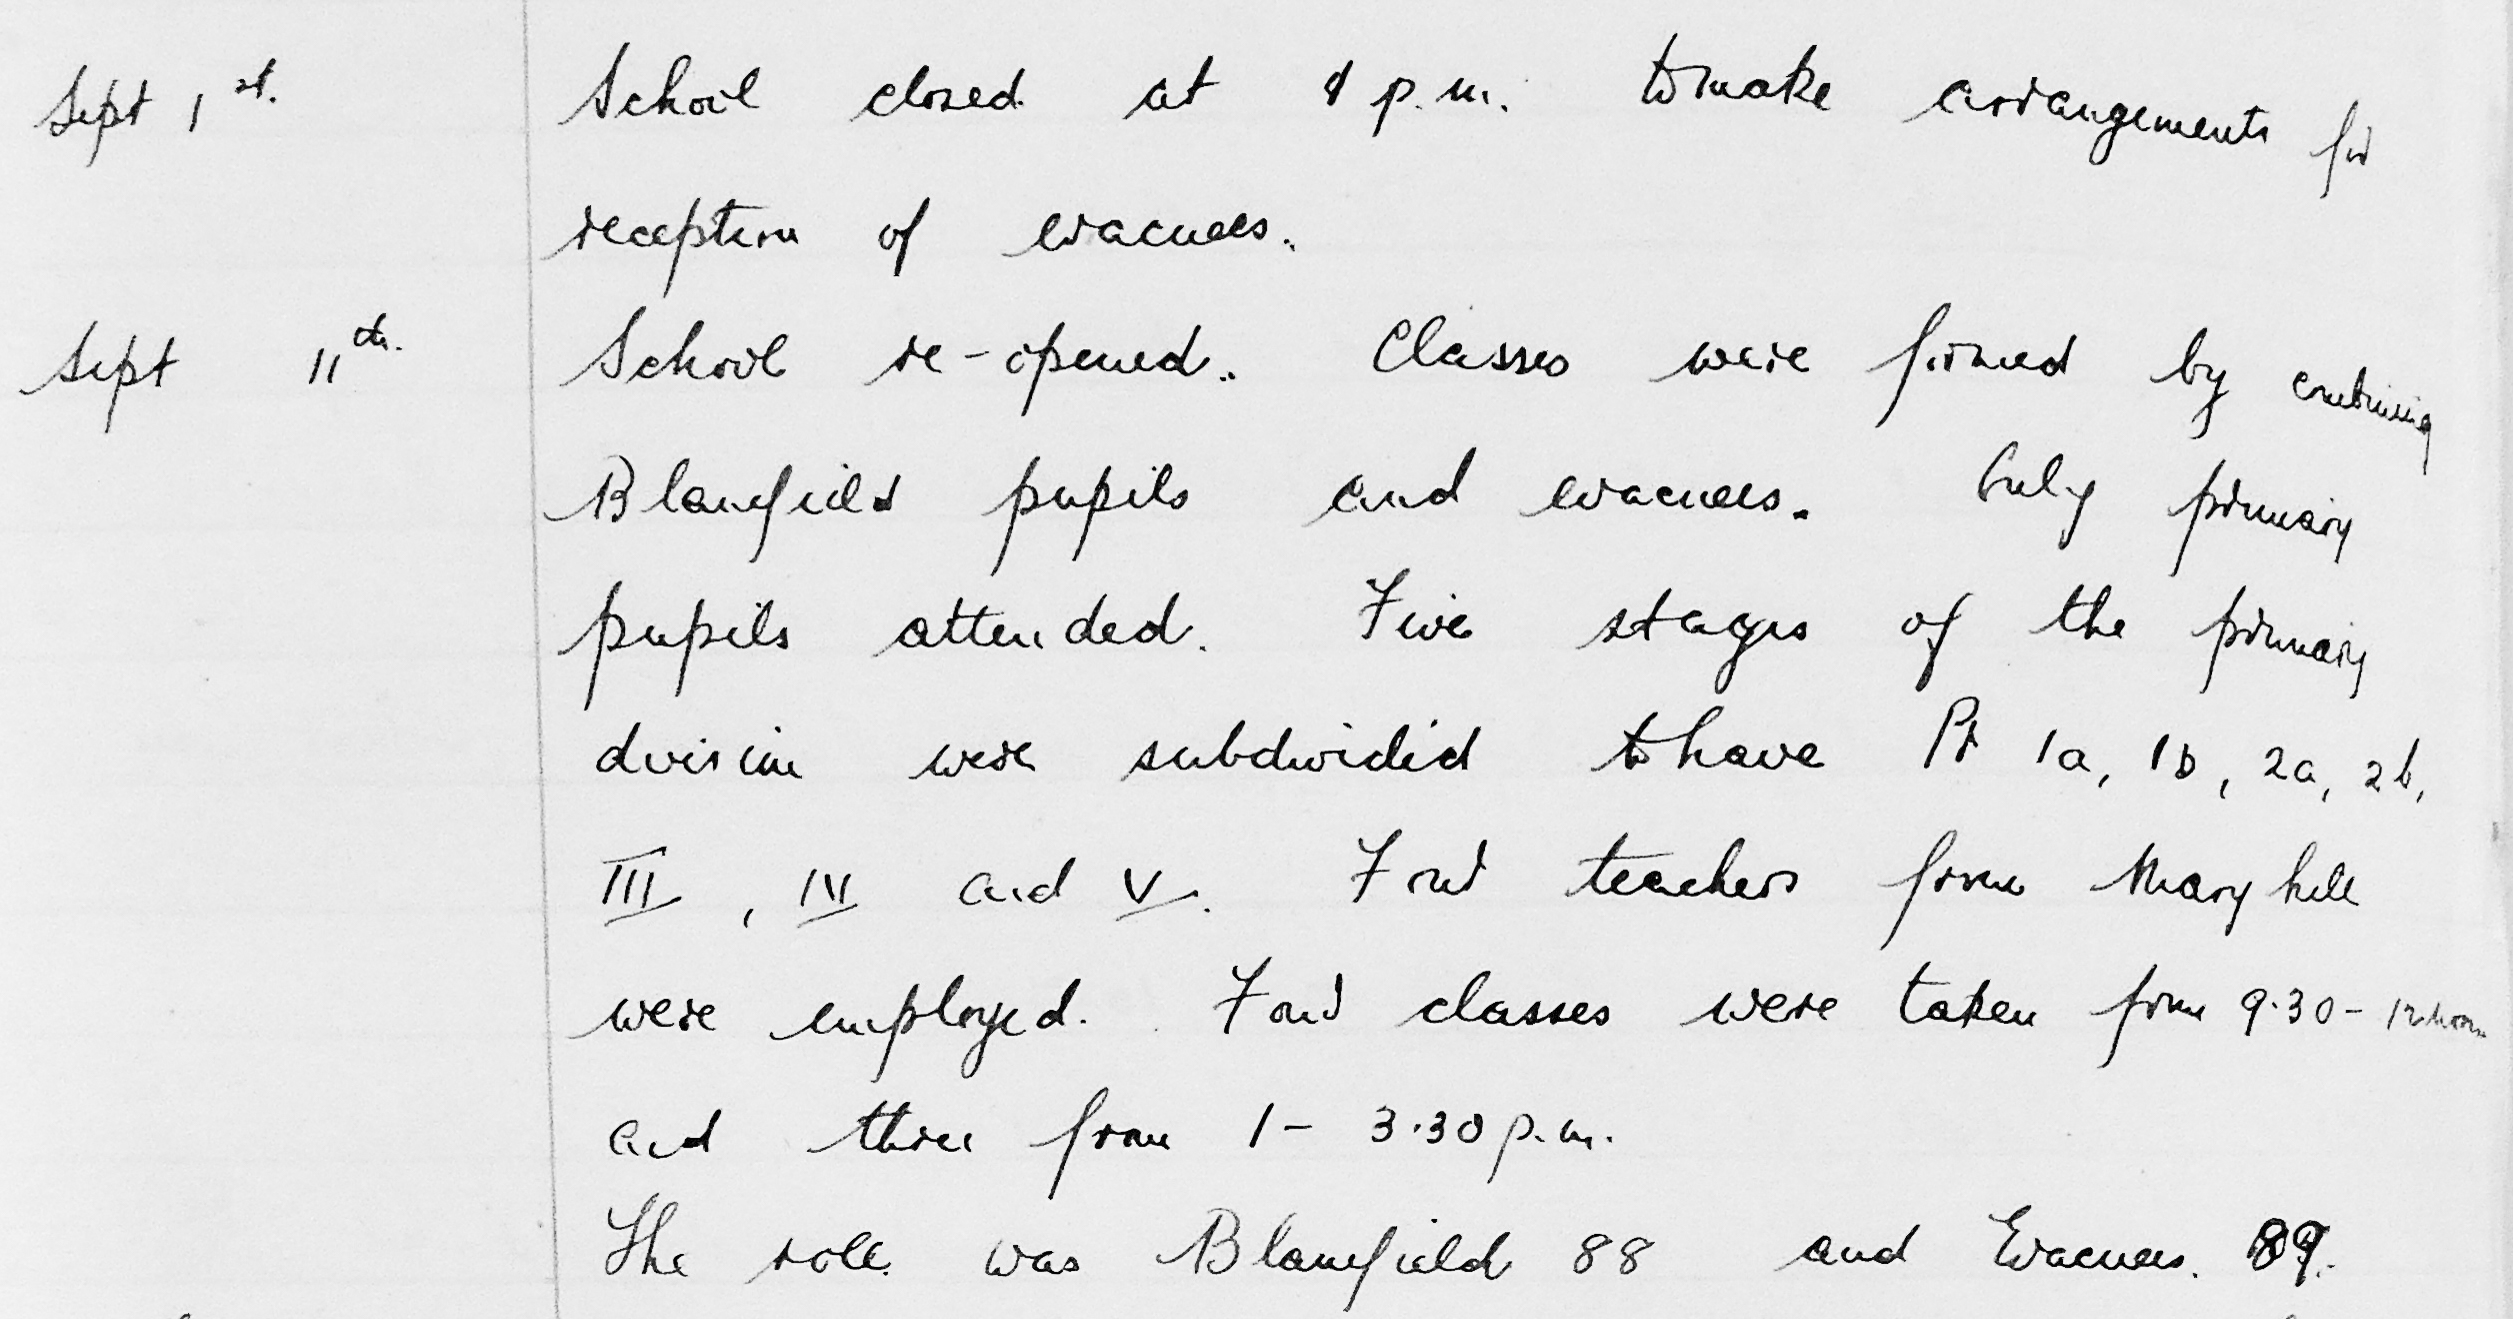 Sept 1st. School closed at 1 p.m. to make arrangements for
reception of evacuees.
Sept 11th. School re-opened. Classes were formed by combining
Blanefield pupils and evacuees. Only primary
pupils attended. Five stages of the primary
division were subdivided to have Pr 1a, 1b, 2a, 2b,
III, IV and V. Four teachers from Maryhill
were employed. Four classes were taken from 9.30 - 12 noon
and three from 1 - 3.30 p.m.
The roll was Blanefield 88 and Evacuees. 89.